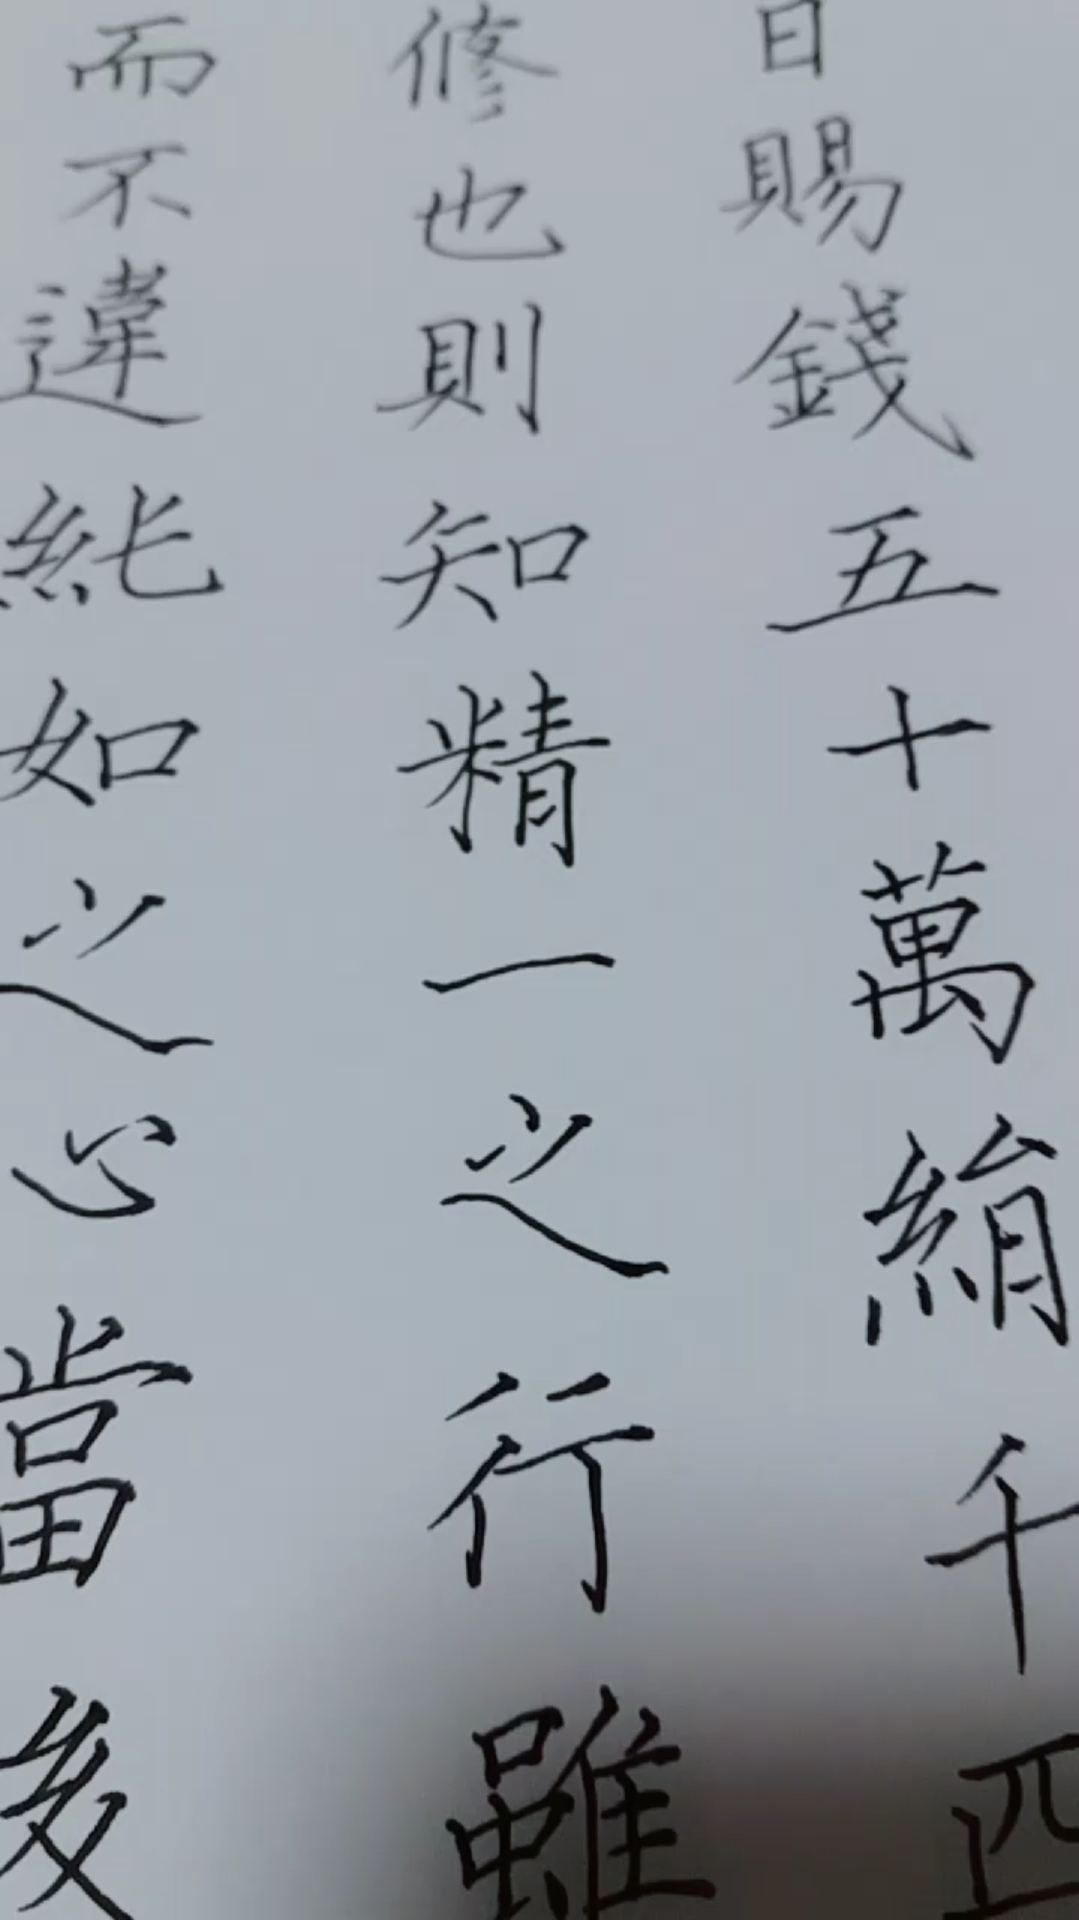 日賜錢五十萬絹千匹
修也則知精一之行雖
而不違純如之心當後